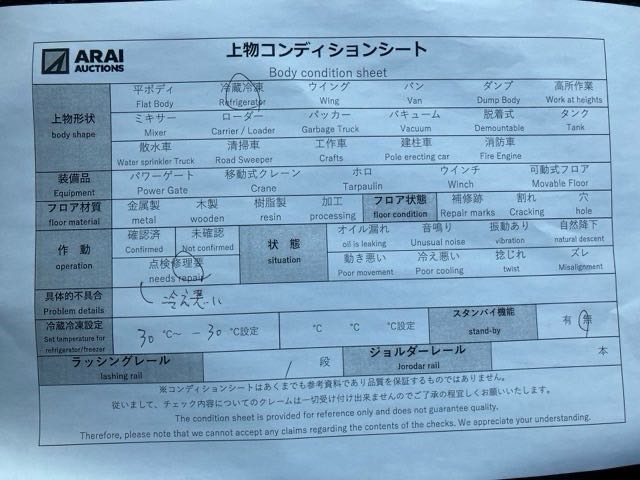 ARAI
AUCTIONS
上物コンディションシート
Body condition sheet
上物形状
body shape
平ボディ 冷蔵冷凍 ウイング バン ダンプ 高所作業
Flat Body Refrigerator Wing Van Dump Body Work at heights
ミキサー ローダー パッカー バキューム 脱着式 タンク
Mixer Carrier / Loader Garbage Truck Vacuum Demountable Tank
散水車 清掃車 工作車 建柱車 消防車
Water sprinkler Truck Road Sweeper Crafts Pole erecting car Fire Engine
装備品
Equipment
パワーゲート 移動式クレーン ホロ ウインチ 可動式フロア
Power Gate Crane Tarpaulin Winch Movable Floor
フロア材質
floor material
金属製 木製 樹脂製 加工
metal wooden resin processing
フロア状態
floor condition
補修跡 割れ 穴
Repair marks Cracking hole
作 動
operation
確認済 未確認
Confirmed Not confirmed
点検修理要
needs repair
状 態
situation
オイル漏れ 音鳴り 振動あり 自然降下
oil is leaking Unusual noise vibration natural descent
動き悪い 冷え悪い 捻じれ ズレ
Poor movement Poor cooling twist Misalignment
具体的不具合
Problem details
冷え悪い
冷蔵冷凍設定
Set temperature for
refrigerator/freezer
30 ℃〜 -30 ℃設定 ℃ ℃ ℃設定
スタンバイ機能
stand-by
有 無
ラッシングレール
lashing rail
段
ジョルダーレール
Jorodar rail
本
※コンディションシートはあくまでも参考資料であり品質を保証するものではありません。
従いまして、チェック内容についてのクレームは一切受け付け出来ませんのでご了承の程宜しくお願いいたします。
The condition sheet is provided for reference only and does not guarantee quality.
Therefore, please note that we cannot accept any claims regarding the contents of the checks. We appreciate your understanding.